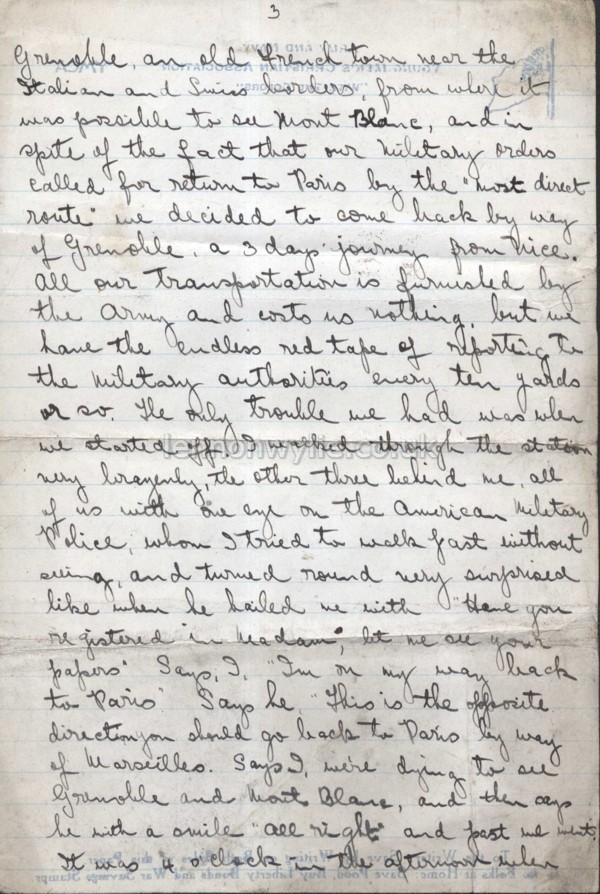 3
Grenoble, an old French town near the
Italian and Swiss borders, from where it
was possible to see Mont Blanc, and in
spite of the fact that our military orders
called for return to Paris by the "most direct
route" we decided to come back by way
of Grenoble, a 3 days journey from Nice.
All our transportation is furnished by
the Army and costs us nothing, but we
have the endless red tape of reporting to
the military authorities every ten yards
or so. The only trouble we had was when
we started off. I walked through the station
very brazenly, the other three behind me, all
of us with one eye on the American Military
Police, whom I tried to walk past without
seeing, and turned round very surprised
like when he hailed me with "Have you
registered in Madam", let me see your
papers" Says, I, "I'm on my way back
to Paris" Says he, "This is the opposite
direction you should go back to Paris by way
of Marseilles. Says I, we're dying to see
Grenoble and Mont Blanc, and then says
he with a smile "all right" and past we went.
It was 4 o'clock in the afternoon when
lennonwylie.co.uk